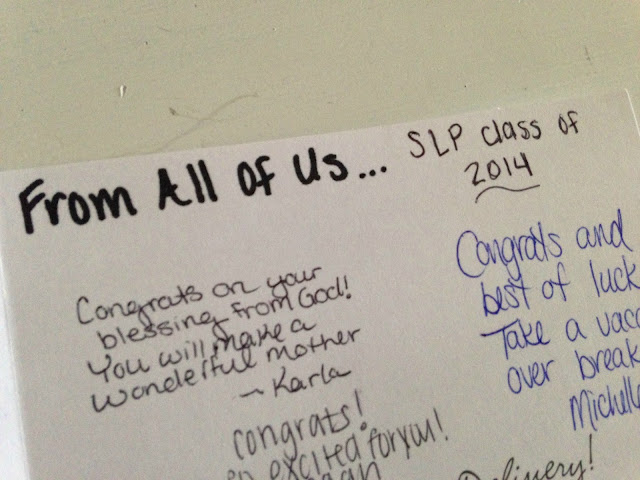 From All of Us...
SLP class of
2014
Congrats on your
blessing from God!
You will make a
wonderful mother
- Karla
Congrats and
best of luck
Take a vaca
over break
Michelle
congrats!
excited for you!
Delivery!